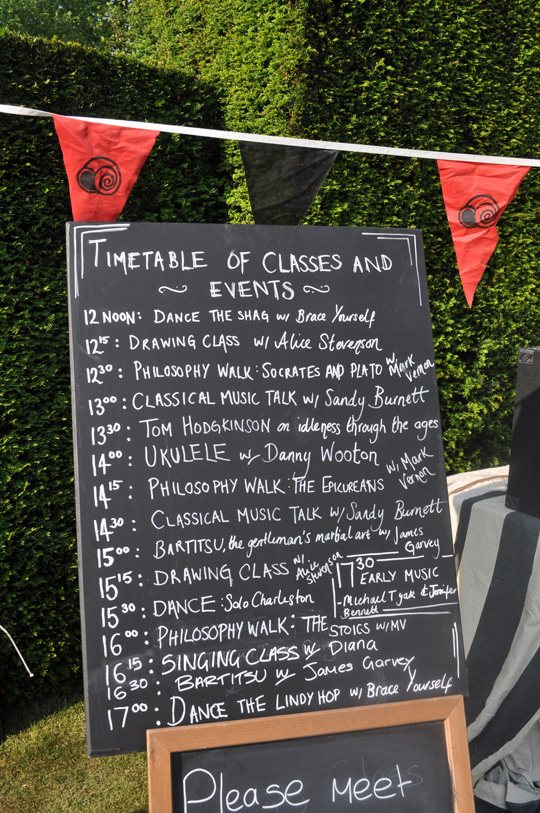 TIMETABLE OF CLASSES AND
~ EVENTS ~
12 NOON: DANCE THE SHAG w/ Brace Yourself
12 15: DRAWING CLASS w/ Alice Stevenson
12 30: PHILOSOPHY WALK: SOCRATES AND PLATO w/ Mark Vernon
13 00: CLASSICAL MUSIC TALK w/ Sandy Burnett
13 30: TOM HODGKINSON on idleness through the ages
14 00: UKULELE w/ Danny Wooton
14 15: PHILOSOPHY WALK: THE EPICUREANS w/ Mark Vernon
14 30: CLASSICAL MUSIC TALK w/ Sandy Burnett
15 00: BARTITSU, the gentleman's martial art w/ James Garvey
15 15: DRAWING CLASS w/ Alice Stevenson
15 30: DANCE: Solo Charleston
17 30
EARLY MUSIC
- Michael Tyack & Jennifer
Bennett
16 00: PHILOSOPHY WALK: THE STOICS W/MV
16 15: SINGING CLASS w/ Diana
16 30: BARTITSU w/ James Garvey
17 00: DANCE THE LINDY HOP w/ Brace Yourself
Please Meet